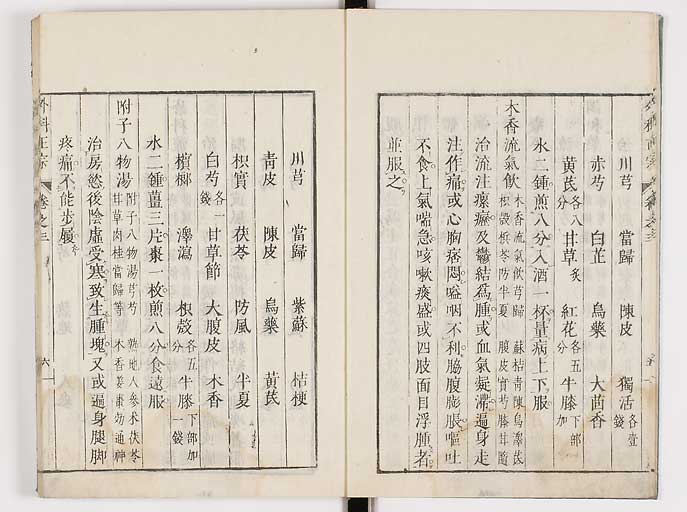 川芎 當歸 陳皮 獨活各壹錢
赤芍 白芷 烏藥 大茴香
黃芪各八分 甘草炙 紅花各五分 牛膝下部加
水二鍾煎八分入酒一杯量病上下服
木香流氣飲 木香流氣飲芎歸 蘇桔青陳烏澤芪 枳殼梹苓防半夏 腹皮實芍膝甘隨
治流注瘰癧及鬱結爲腫或血氣凝滯遍身走
注作痛或心胸痞悶嗌咽不利脇腹膨脹嘔吐
不食上氣喘急咳嗽痰盛或四肢面目浮腫者
並服之
川芎 當歸 紫蘇 桔梗
青皮 陳皮 烏藥 黃芪
枳實 茯苓 防風 半夏
白芍各一錢 甘草節 大腹皮 木香
檳榔 澤瀉 枳殼各五分 牛膝下部加一錢
水二鍾薑三片棗一枚煎八分食遠服
附子八物湯 附子八物湯芎芍 熟地人參朮茯苓 甘草肉桂當歸等 木香姜棗効通神
治房慾後陰虛受寒致生腫塊又或遍身腿脚
疼痛不能步履
外科正宗 卷之三 六